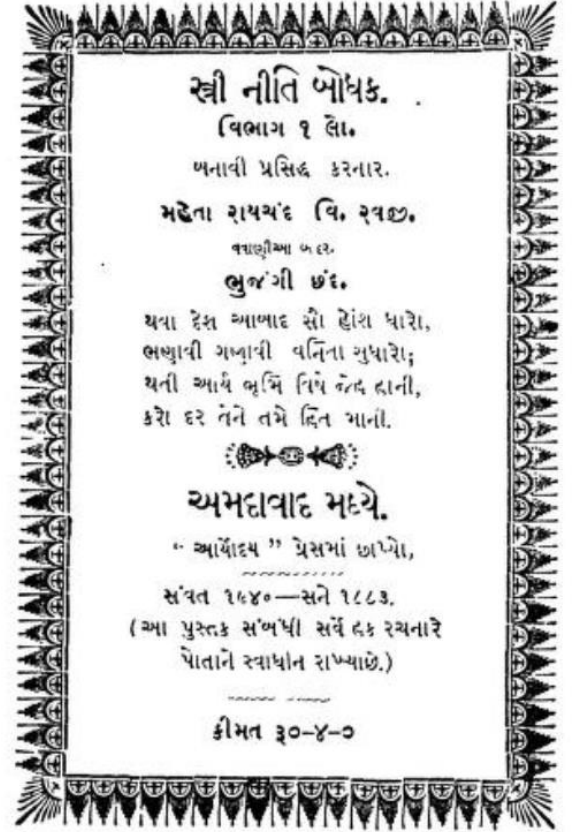 સ્ત્રી નીતિ બોધક.
વિભાગ ૧ લો.
બનાવી પ્રસિદ્ધ કરનાર.
મહેતા રાયચંદ વિ. રવજી.
વવાણીઆ બંદર.
ભુજંગી છંદ.
થવા દેશ આબાદ સૌ હોંશ ધારો,
ભણાવી ગણાવી વનિતા સુધારો;
થતી આર્ય ભૂમિ વિષે જેહ હાની,
કરો દૂર તેને તમે હિત માની.
અમદાવાદ મધ્યે.
“ આર્યોદય ” પ્રેસમાં છાપ્યો,
સંવત ૧૯૪૦—સને ૧૮૮૩.
(આ પુસ્તક સંબંધી સર્વે હક રચનારે
પોતાને સ્વાધીન રાખ્યાછે.)
કીમત રૂ૦-૪-૦